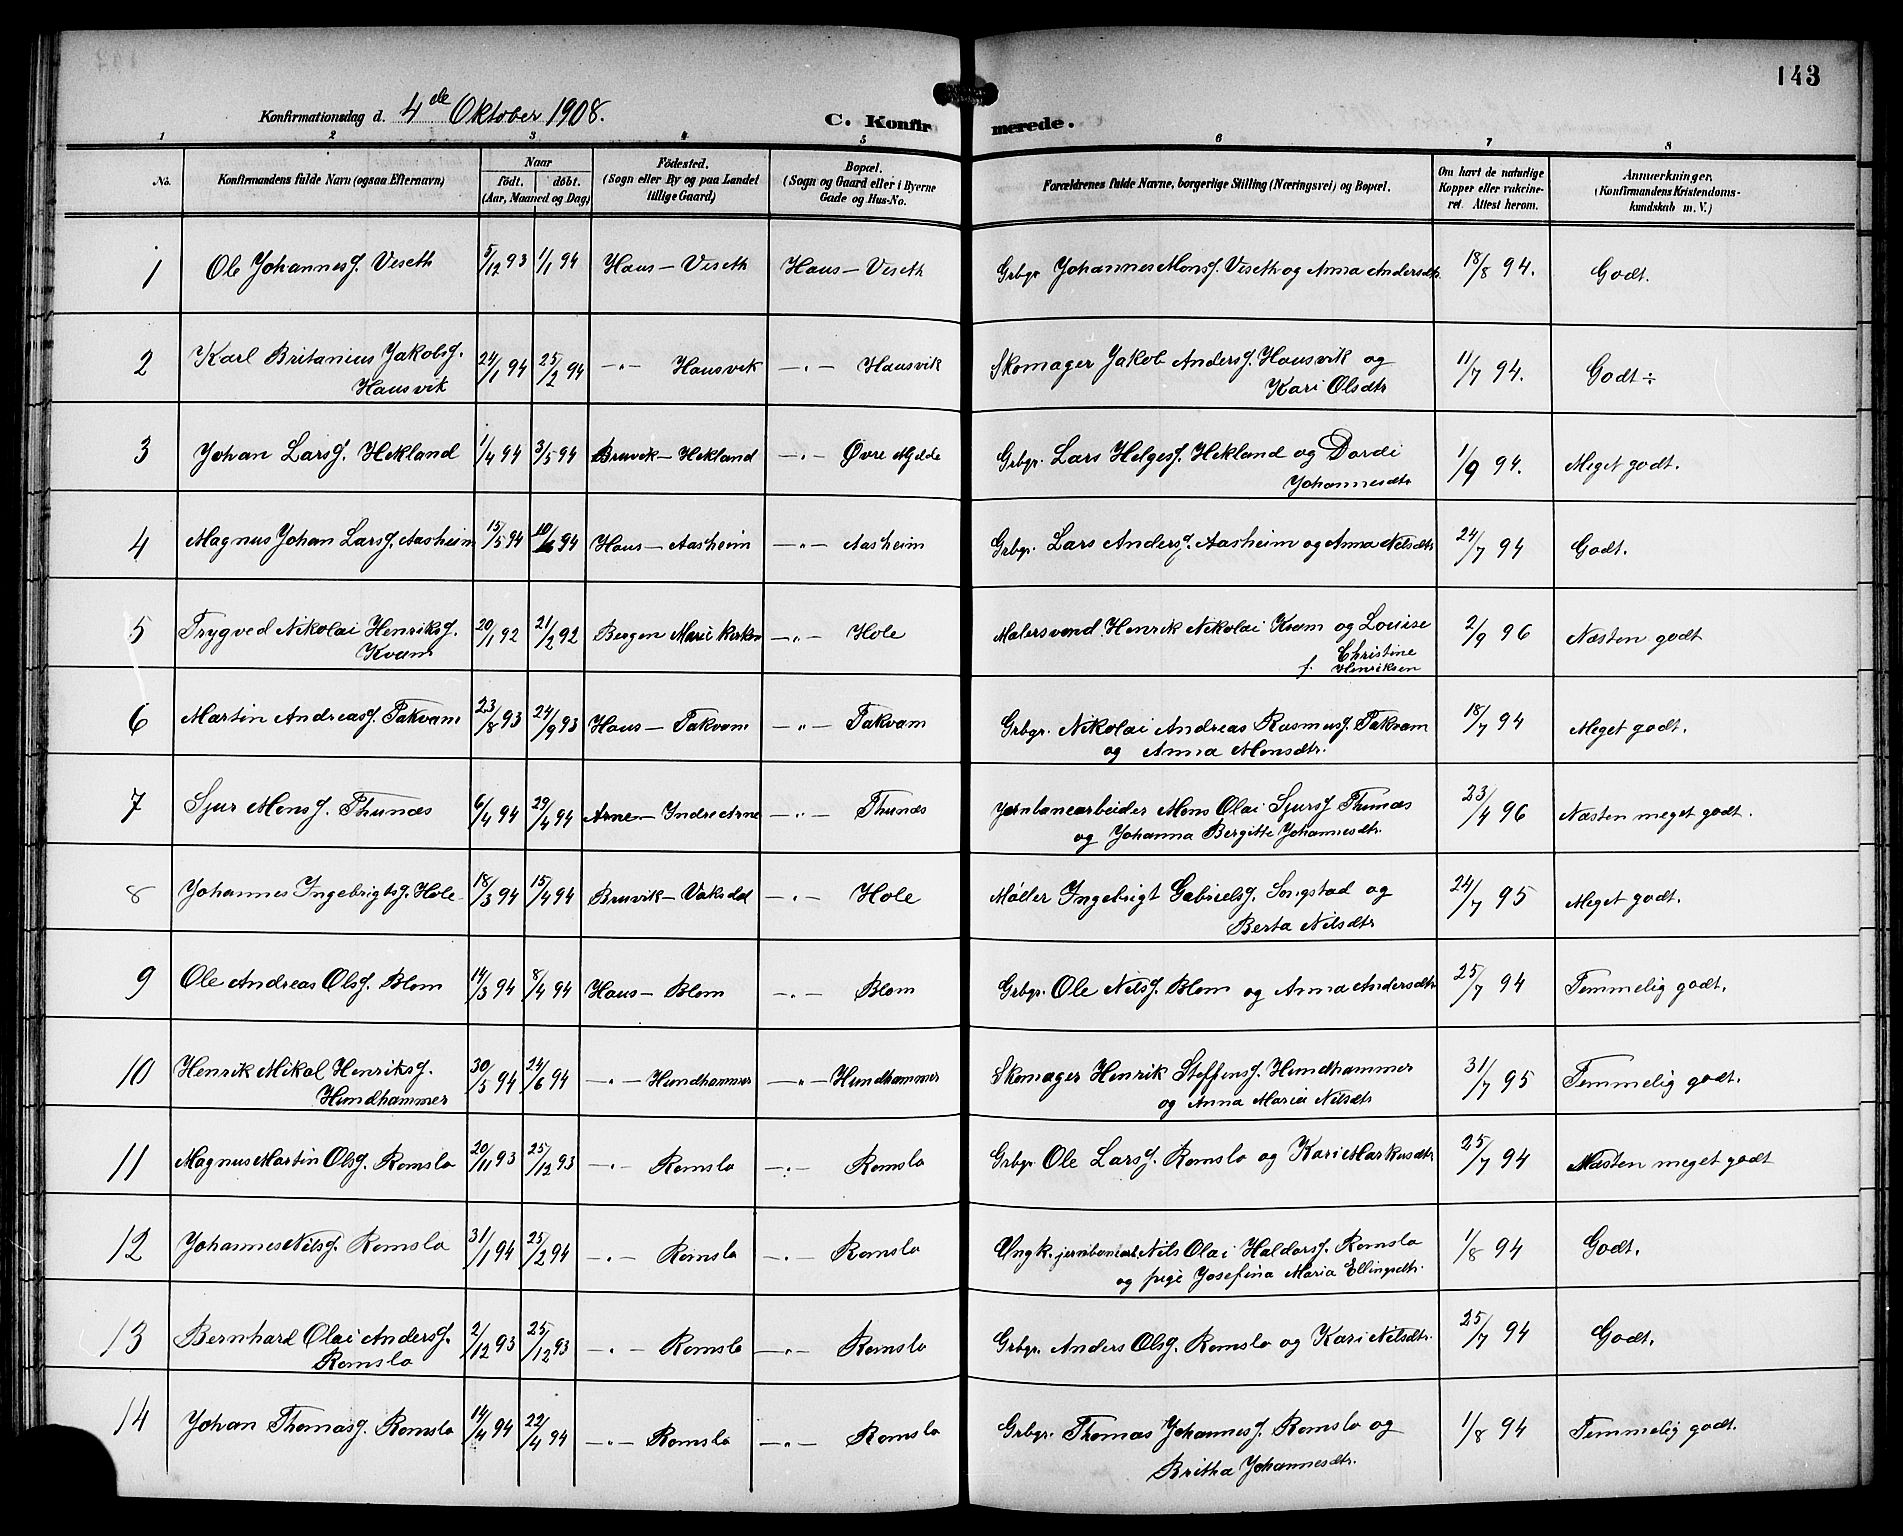 143
Konfirmationsdag d. 4de Oktober 1908. C. Konfirmerede.
1 2 3 4 5 6 7 8
No. Konfirmandens fulde Navn (ogsaa Efternavn) Naar født. døbt. (Aar, Maaned og Dag) Fødested. (Sogn eller By og paa Landet tillige Gaard) Bopæl. (Sogn og Gaard eller i Byerne Gade og Hus-No. Forældrenes fulde Navne, borgerlige Stilling (Næringsvei) og Bopæl. Om havt de naturlige Kopper eller vakcineret. Attest herom. Anmerkninger, (Konfirmandens Kristendomskundskab m. V.)
1 Ole Johannesf. Veseth 5/12 93 1/1 94 Haus — Veseth Haus — Veseth Grbgr. Johannes Monsf. Veseth og Anna Andersdtr. 18/8 94. Godt.
2 Karl Britanius Jakobsf. 24/1 94 25/2 94 —"— Hausvik —"— Hausvik Skomager Jakob Andersf. Hausvik og 11/7 94. Godt ÷
Hausvik Kari Olsdtr
3 Johan Larsf. Hekland 1/4 94 3/5 94 Bruvik — Hekland —"— Øvre Mjelde Grbgr. Lars Helgesf. Hekland og Dordi 1/9 94. Meget godt.
Johannesdtr
4 Magnus Johan Larsf. Aasheim 15/5 94 10/6 94 Haus — Aasheim —"— Aasheim Grbgr. Lars Andersf. Aasheim og Anna Nilsdtr 24/7 94 Godt.
5 Trygved Nikolai Henriksf. 20/1 92 21/2 92 Bergen Marie kirken —"— Hole Malersvend Henrik Nikolai Kvam og Louise 2/9 96 Næsten godt
Kvam Christine
f. Henriksen
6 Martin Andreasf. Takvam 23/8 93 24/9 93 Haus — Takvam —"— Takvam Grbgr. Nikolai Andreas Rasmusf. Takvam 18/7 94 Meget godt.
og Anna Monsdtr.
7 Sjur Monsf. Thunæs 6/4 94 29/4 94 Arne — Indre Arne —"— Thunæs Jernbanearbeider Mons Olai Sjursf. Thunæs 23/4 96 Næsten meget godt.
og Johanna Bergitte Johannesdtr.
8 Johannes Ingebrigtsf. Hole 18/3 94 15/4 94 Bruvik — Vaksdal —"— Hole Møller Ingebrigt Gabrielsf. Songstad og 24/7 95 Meget godt.
Berta Nilsdtr
9 Ole Andreas Olsf. Blom 14/3 94 8/4 94 Haus — Blom —"— Blom Grbgr. Ole Nilsf. Blom og Anna Andersdtr 25/7 94 Temmelig godt.
10 Henrik Mikal Henriksf. 30/5 94 24/6 94 —"— Hundhammer —"— Hundhammer Skomager Henrik Steffensf. Hundhammer 31/7 95 Temmelig godt.
Hundhammer og Anna Maria Nilsdtr
11 Magnus Martin Olsf. Romslo 20/11 93 25/12 93 —"— Romslo —"— Romslo Grbgr Ole Larsf. Romslo og Kari Markusdtr 25/7 94 Næsten meget godt
12 Johannes Nilsf. Romslo 31/1 94 25/2 94 —"— Romslo —"— Romslo Ungk. jernbanearb. Nils Olai Haldorsf. Romslo 1/8 94 Godt.
og pige Josefina Maria Ellingsdtr.
13 Bernhard Olai Andersf. 2/12 93 25/12 93 —"— Romslo —"— Romslo Grbgr. Anders Olsf. Romslo og Kari Nilsdtr. 25/7 94 Godt.
Romslo
14 Johan Thomasf. Romslo 14/4 94 22/4 94 —"— Romslo —"— Romslo Grbgr. Thomas Johannesf. Romslo og 1/8 94 Temmelig godt.
Britha Johannesdtr.